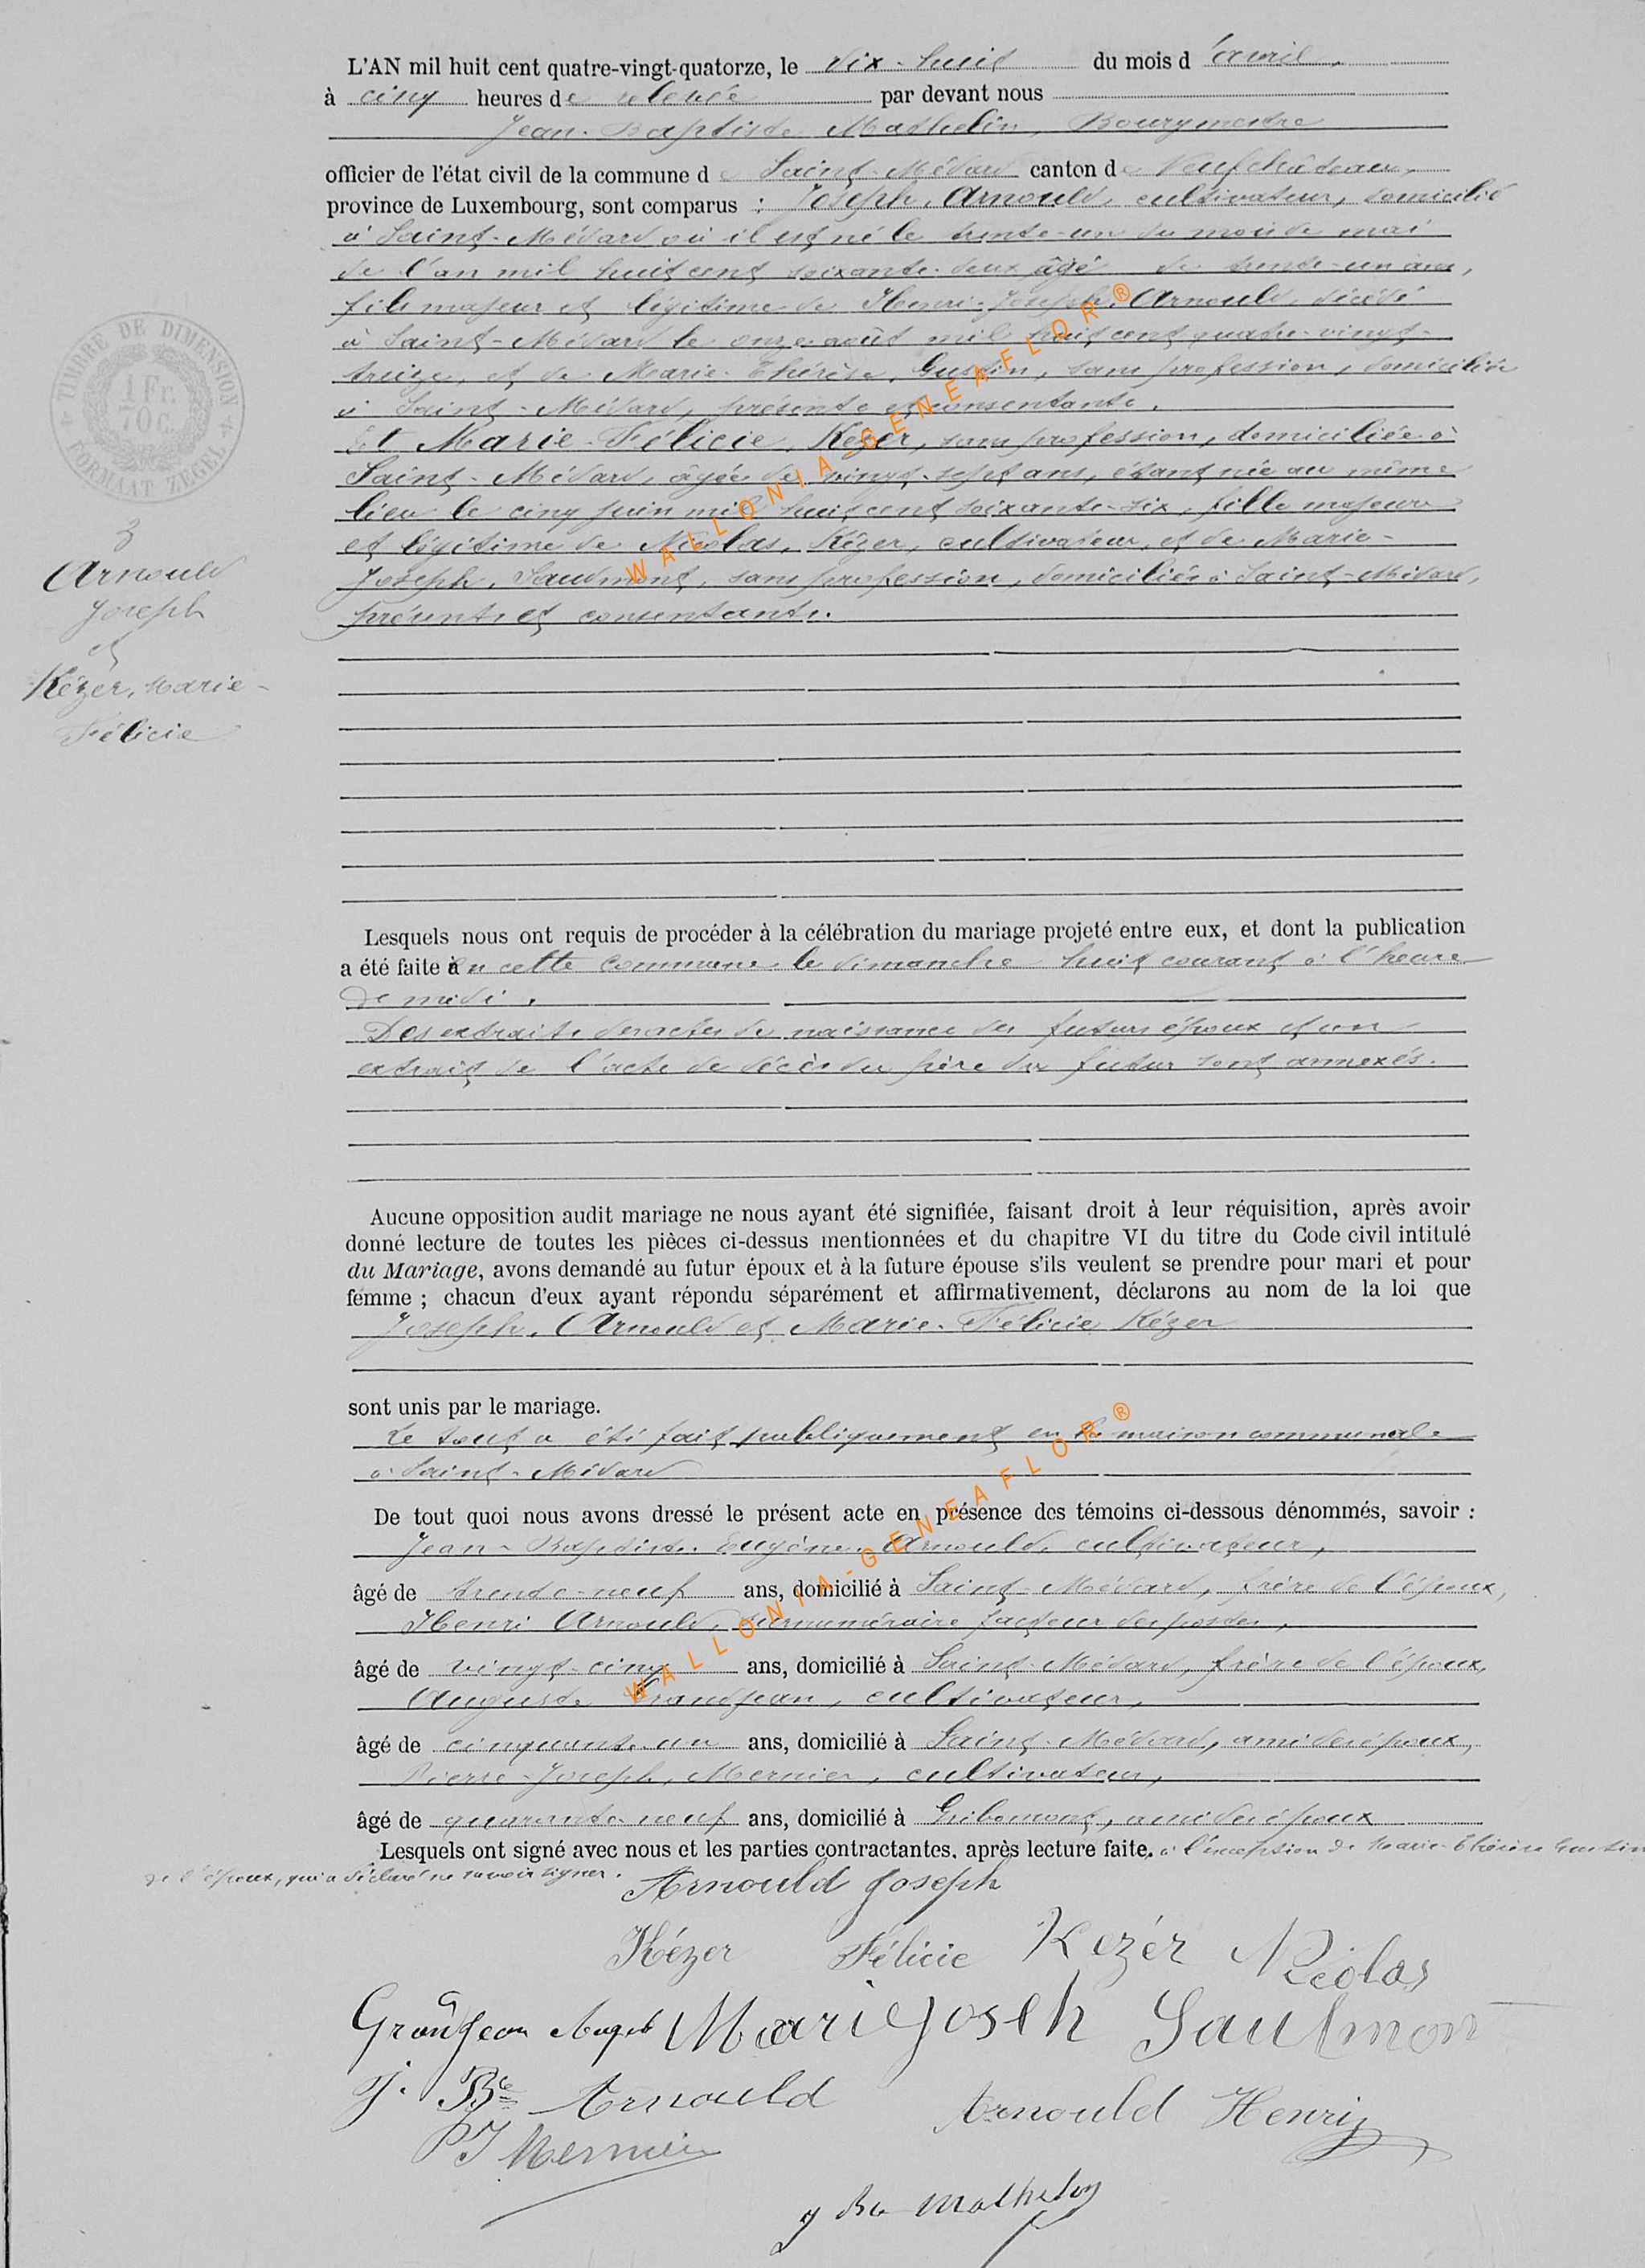 L'AN mil huit cent quatre-vingt-quatorze, le dix-huit du mois d'avril,
à cinq heures de relevée par devant nous
Jean-Baptiste Mathelin, Bourgmestre
officier de l'état civil de la commune de Saint-Médard canton de Neufchâteau,
province de Luxembourg, sont comparus : Joseph, Arnould, cultivateur, domicilié
à Saint-Médard où il est né le trente-un du mois de mai
de l'an mil huit cent soixante-deux âgé de trente-un ans,
fils majeur et légitime de Henri-Joseph, Arnould, décédé
à Saint-Médard le onze août mil huit cent quatre-vingt-
treize, et de Marie-Thérèse, Gustin, sans profession, domiciliée
à Saint-Médard, présente et consentante.
Et Marie-Félicie, Kézer, sans profession, domiciliée à
Saint-Médard, âgée de vingt-sept ans, étant née au même
lieu le cinq juin mil huit cent soixante-six, fille majeure
et légitime de Nicolas, Kézer, cultivateur, et de Marie-
Joseph, Saudmont, sans profession, domiciliés à Saint-Médard,
présents et consentants.
TIMBRE DE DIMENSION
1 Fr.
70 C.
FORMAAT ZEGEL
3
Arnould
Joseph
et
Kézer, Marie-
Félicie
Lesquels nous ont requis de procéder à la célébration du mariage projeté entre eux, et dont la publication
a été faite en cette commune le dimanche huit courant à l'heure
de midi.
Des extraits des actes de naissance des futurs époux et un
extrait de l'acte de décès du père du futur sont annexés.
Aucune opposition audit mariage ne nous ayant été signifiée, faisant droit à leur réquisition, après avoir
donné lecture de toutes les pièces ci-dessus mentionnées et du chapitre VI du titre du Code civil intitulé
du Mariage, avons demandé au futur époux et à la future épouse s'ils veulent se prendre pour mari et pour
femme ; chacun d'eux ayant répondu séparément et affirmativement, déclarons au nom de la loi que
Joseph, Arnould et Marie-Félicie, Kézer
sont unis par le mariage.
Le tout a été fait publiquement en la maison communale
à Saint-Médard
De tout quoi nous avons dressé le présent acte en présence des témoins ci-dessous dénommés, savoir :
Jean-Baptiste-Eugène, Arnould, cultivateur,
âgé de trente-neuf ans, domicilié à Saint-Médard, frère de l'époux,
Henri Arnould, surnuméraire facteur des postes,
âgé de vingt-cinq ans, domicilié à Saint-Médard, frère de l'époux,
Auguste Grandjean, cultivateur,
âgé de cinquante-un ans, domicilié à Saint-Médard, ami des époux,
Pierre-Joseph, Mernier, cultivateur,
âgé de quarante-neuf ans, domicilié à Gribomont, ami des époux
Lesquels ont signé avec nous et les parties contractantes, après lecture faite, à l'exception de Marie-Thérèse Gustin
de l'époux, qui a déclaré ne savoir signer.
Arnould Joseph
Kézer Félicie Kezér Nicolas
Grandjean Marie Joseh Saudmont
J. Bte Arnould Arnould Henri
PJ Mernier
J Bte Mathelin
WALLONIA-GENEAFLOR®
WALLONIA-GENEAFLOR®